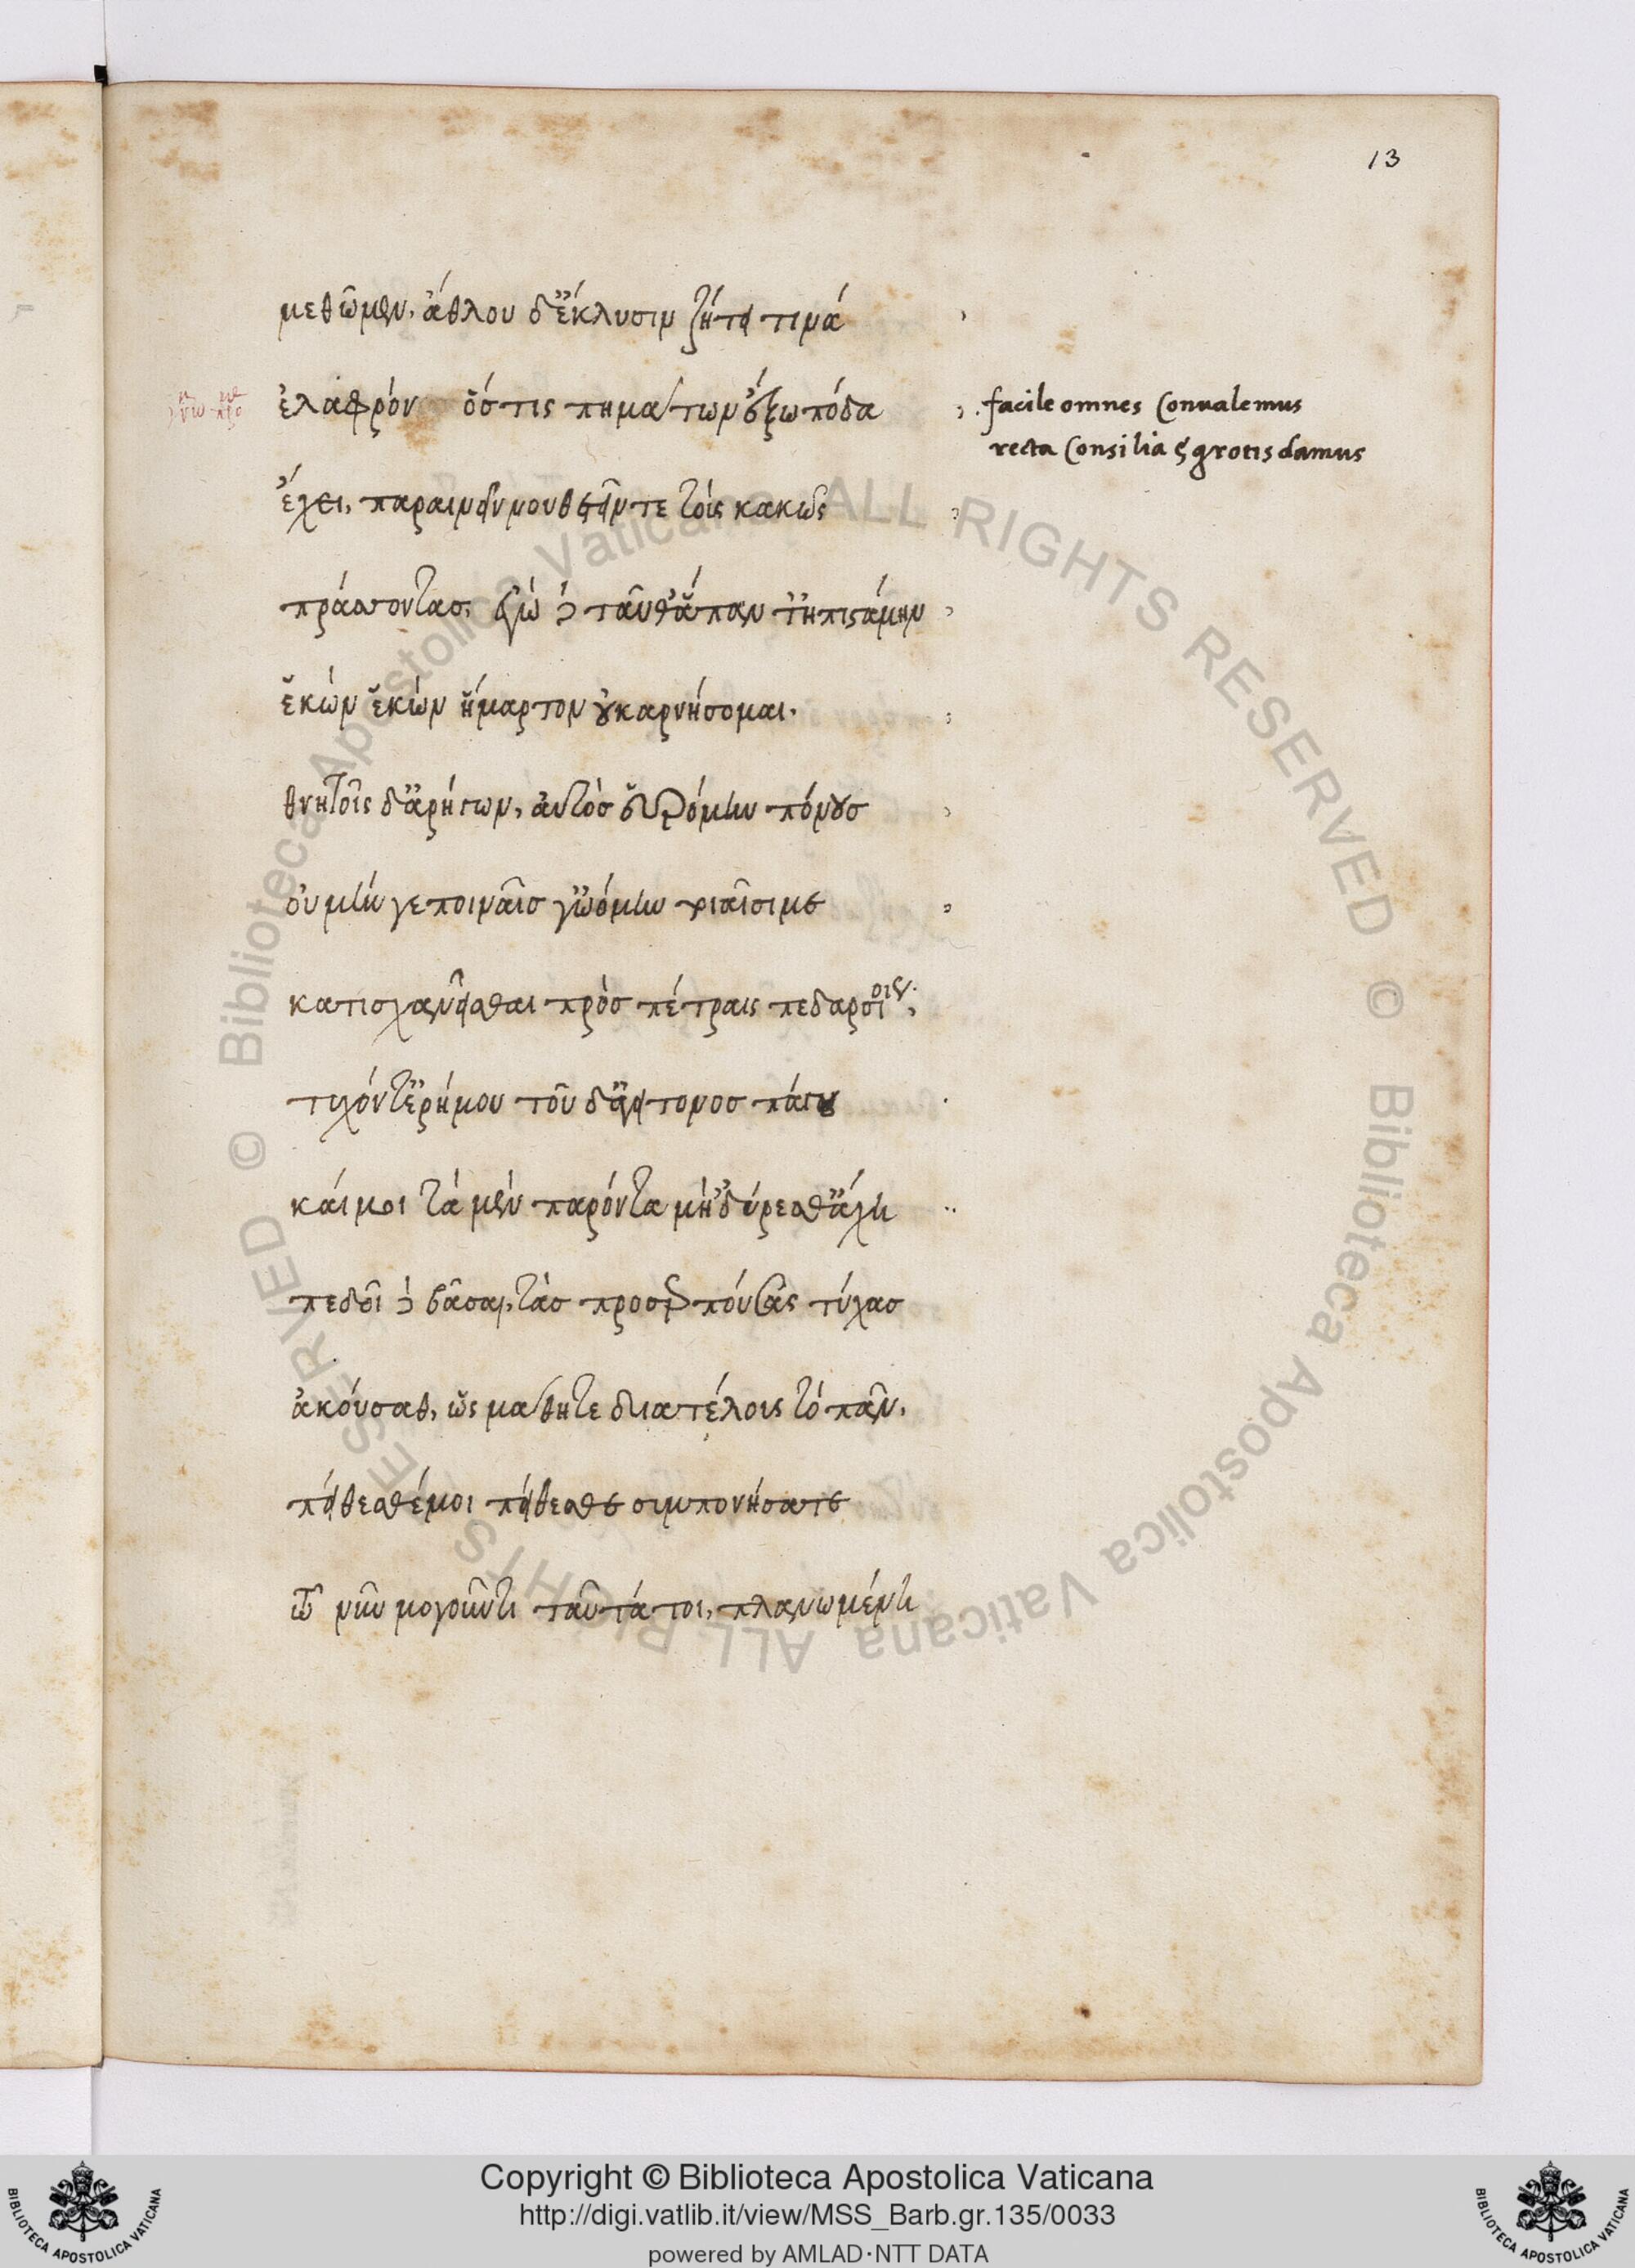 13
μεθῶμεν, ἄθλου δ' ἔκλυσιν ζήτει τινά
ἐλαφρόν ὅστις πημάτων ἔξω πόδα
facile omnes Convalemus
recta Consilia ęgrotis damus
ἔχει, παραινεῖν νουθετεῖν τε τοὺς κακῶς
πράσσοντας, ἐγὼ δὲ ταῦθ' ἅπαντ' ἠπιστάμην
ἑκὼν ἑκὼν ἥμαρτον οὐκ ἀρνήσομαι.
θνητοῖς δ' ἀρήγων, αὐτὸς εὑρόμην πόνους
οὐ μὴν γε ποιναῖς γ' ᾠόμην τοιαῖσι με
κατισχανεῖσθαι πρὸς πέτραις πεδαρσίοις,
τυχόντ' ἐρήμου τοῦδ' ἀγείτονος πάγου
καί μοι τὰ μὲν παρόντα μὴ δύρεσθ' ἄχη
πεδοῖ δὲ βᾶσαι, τὰς προσερπούσας τύχας
ἀκούσαθ, ὡς μάθητε διατέλους τὸ πᾶν.
πείθεσθέ μοι πείθεσθε συμπονήσατε
τῷ νῦν μογοῦντι ταῦτά τοι, πλανωμένη
Copyright © Biblioteca Apostolica Vaticana
http://digi.vatlib.it/view/MSS_Barb.gr.135/0033
powered by AMLAD·NTT DATA
BIBLIOTECA APOSTOLICA VATICANA
BIBLIOTECA APOSTOLICA VATICANA
© Biblioteca Apostolica Vaticana ALL RIGHTS RESERVED © Biblioteca Apostolica Vaticana ALL RIGHTS RESERVED